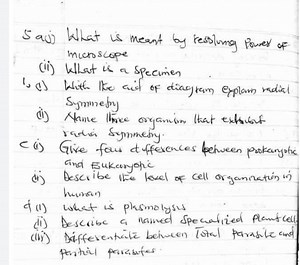 5 a(i) What is meant by resolving Power of
microscope
(ii) What is a Specimen
b (i) With the aid of diagram explain radial
Symmetry
(ii) Name three organism that exhibit
radial Symmetry.
c (i) Give four differences between prokaryotic
and Eukaryotic
(ii) Describe the level of cell organization in
human
d (i) What is plsmolysis
(ii) Describe a named specialized plant cell
(iii) Differentiate between Total Parasite and
Partial parasites